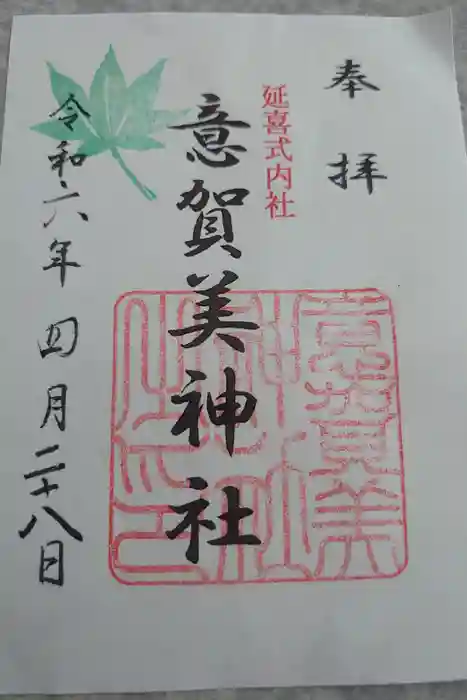 奉拝
延喜式内社
意賀美神社
意賀美
令和六年四月二十八日